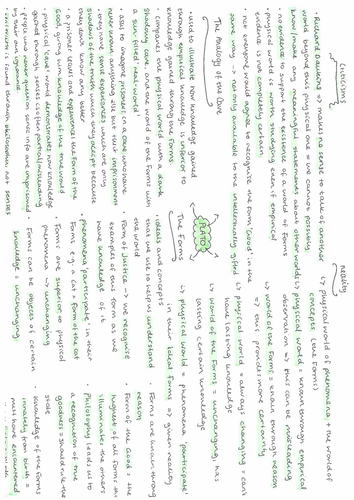 Criticisms
· Richard Dawkins => makes no sense to talk of another
world beyond this physical one = we cannot possibly
know/make any meaningful statements about other worlds
= no evidence to support the existence of a world of Forms
· physical world is worth studying even if empirical
evidence is not completely certain
· not everyone would agree to recognise the form 'Good' in the
same way -> not only available to the intellectually gifted
reality
↳ physical world of phenomena + the world of
concepts (the Forms)
↳ physical world = known through empirical
observation => this can be misleading
↳ world of the Forms = known through reason
=> this provides more certainty
↳ physical world = always changing - can't
have lasting knowledge
↳ world of the Forms = unchanging, has
lasting certain knowledge
↳ physical world = phenomena 'participate'
in their Ideal Forms => given reality
PLATO
The Analogy of the Cave
· used to illustrate how knowledge gained
through empirical knowledge is inferior to
knowledge gained through the Forms
· compares the physical world with a dark
shadowy cave and the world of the Forms with
a sun filled real world
· asks to imagine prisoner in a cave unaware
there is anything else but their imprisonment
· they have sense experiences which are only
shadows of the truth which they accept because
they don't know any better
· a prisoner leaves and experiences the Form of the
Good, giving him knowledge of the true world
· physical level world demonstrates how knowledge
gained through senses is often partial/misleading
people who never reason sense info are imprisoned
by their own ignorance
· true wisdom is found through philosophy not senses
The Forms
· ideals and concepts
that we use to help us understand
the world
· Form of Justice -> we recognise
examples of this form as we
have knowledge of it
· phenomena 'participate' in their
Forms e.g. a cat = Form of the cat
· Forms are superior to physical
phenomena -> unchanging
· Forms can be objects of certain
knowledge = unchanging
· Forms are known through
reason
· Form of the Good = the
highest of all Forms as
illuminates the others
· Philosophy leads us to
a recognition of true
goodness = should rule the
state
· knowledge of the Forms
innately from birth =
must have encountered